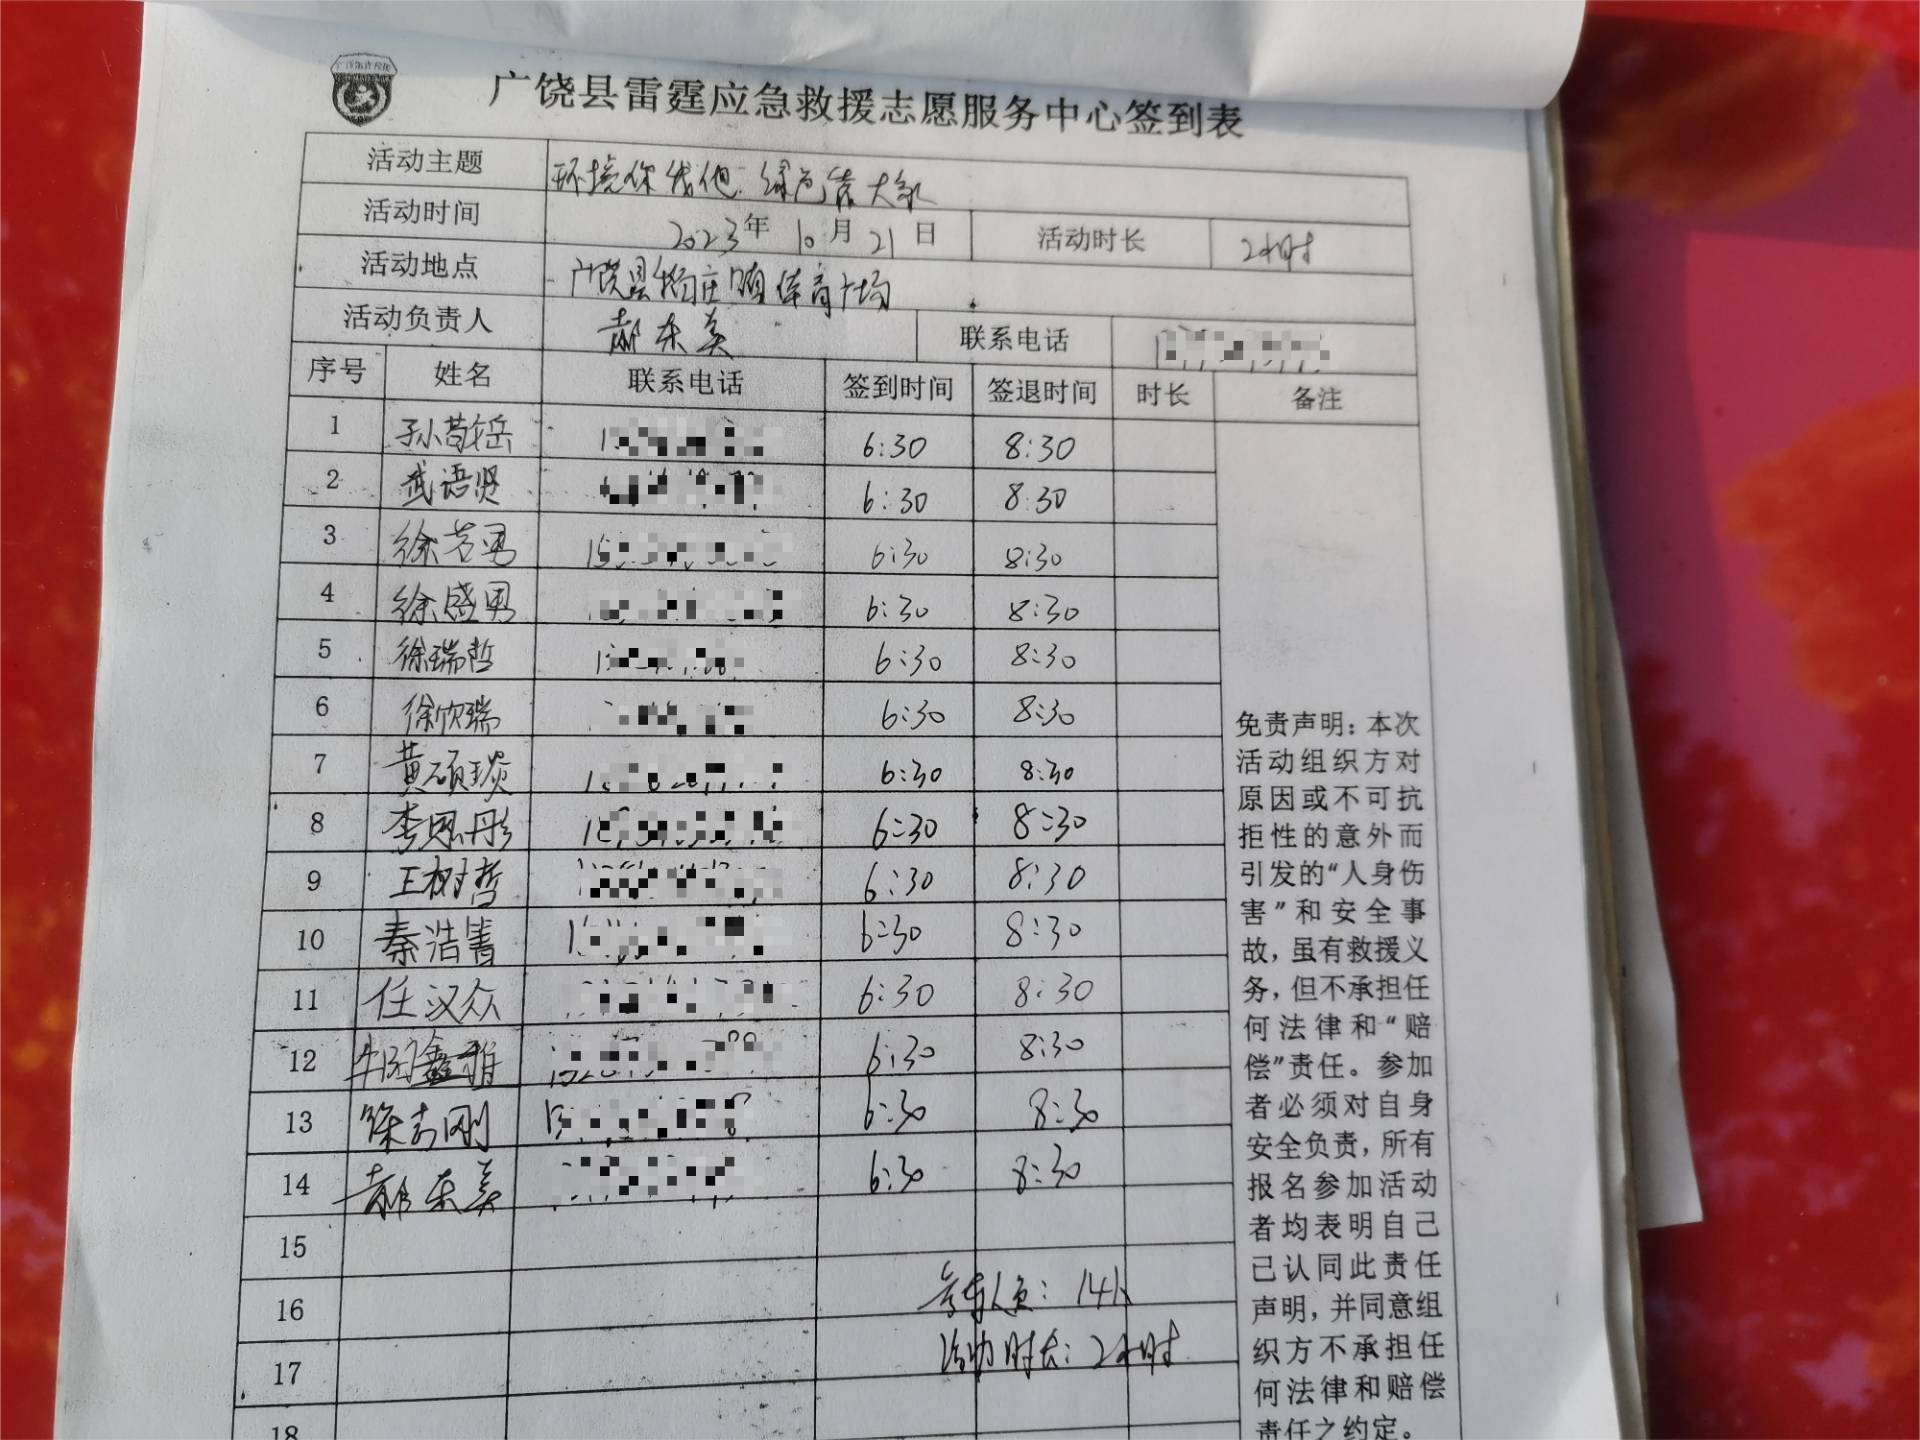 广饶县雷霆应急救援志愿服务中心签到表
活动主题 环境你我他 绿色靠大家
活动时间 2023年 10月 21日 活动时长 2小时
活动地点 广饶县 体育广场
活动负责人 郝东美 联系电话
序号 姓名 联系电话 签到时间 签退时间 时长 备注
1 6:30 8:30
2 武语贤 6:30 8:30
3 徐艺男 6:30 8:30
4 徐盛男 6:30 8:30
5 徐瑞哲 6:30 8:30
6 徐欣瑞 6:30 8:30
7 黄硕琰 6:30 8:30
8 李思彤 6:30 8:30
9 王树哲 6:30 8:30
10 秦浩菁 6:30 8:30
11 任汉众 6:30 8:30
12 6:30 8:30
13 徐志刚 6:30 8:30
14 郝东美 6:30 8:30
15
16 参与人员: 14人
17 活动时长: 2小时
18
免责声明：本次
活动组织方对
原因或不可抗
拒性的意外而
引发的“人身伤
害”和安全事
故，虽有救援义
务，但不承担任
何法律和“赔
偿”责任。参加
者必须对自身
安全负责，所有
报名参加活动
者均表明自己
已认同此责任
声明，并同意组
织方不承担任
何法律和赔偿
责任之约定。